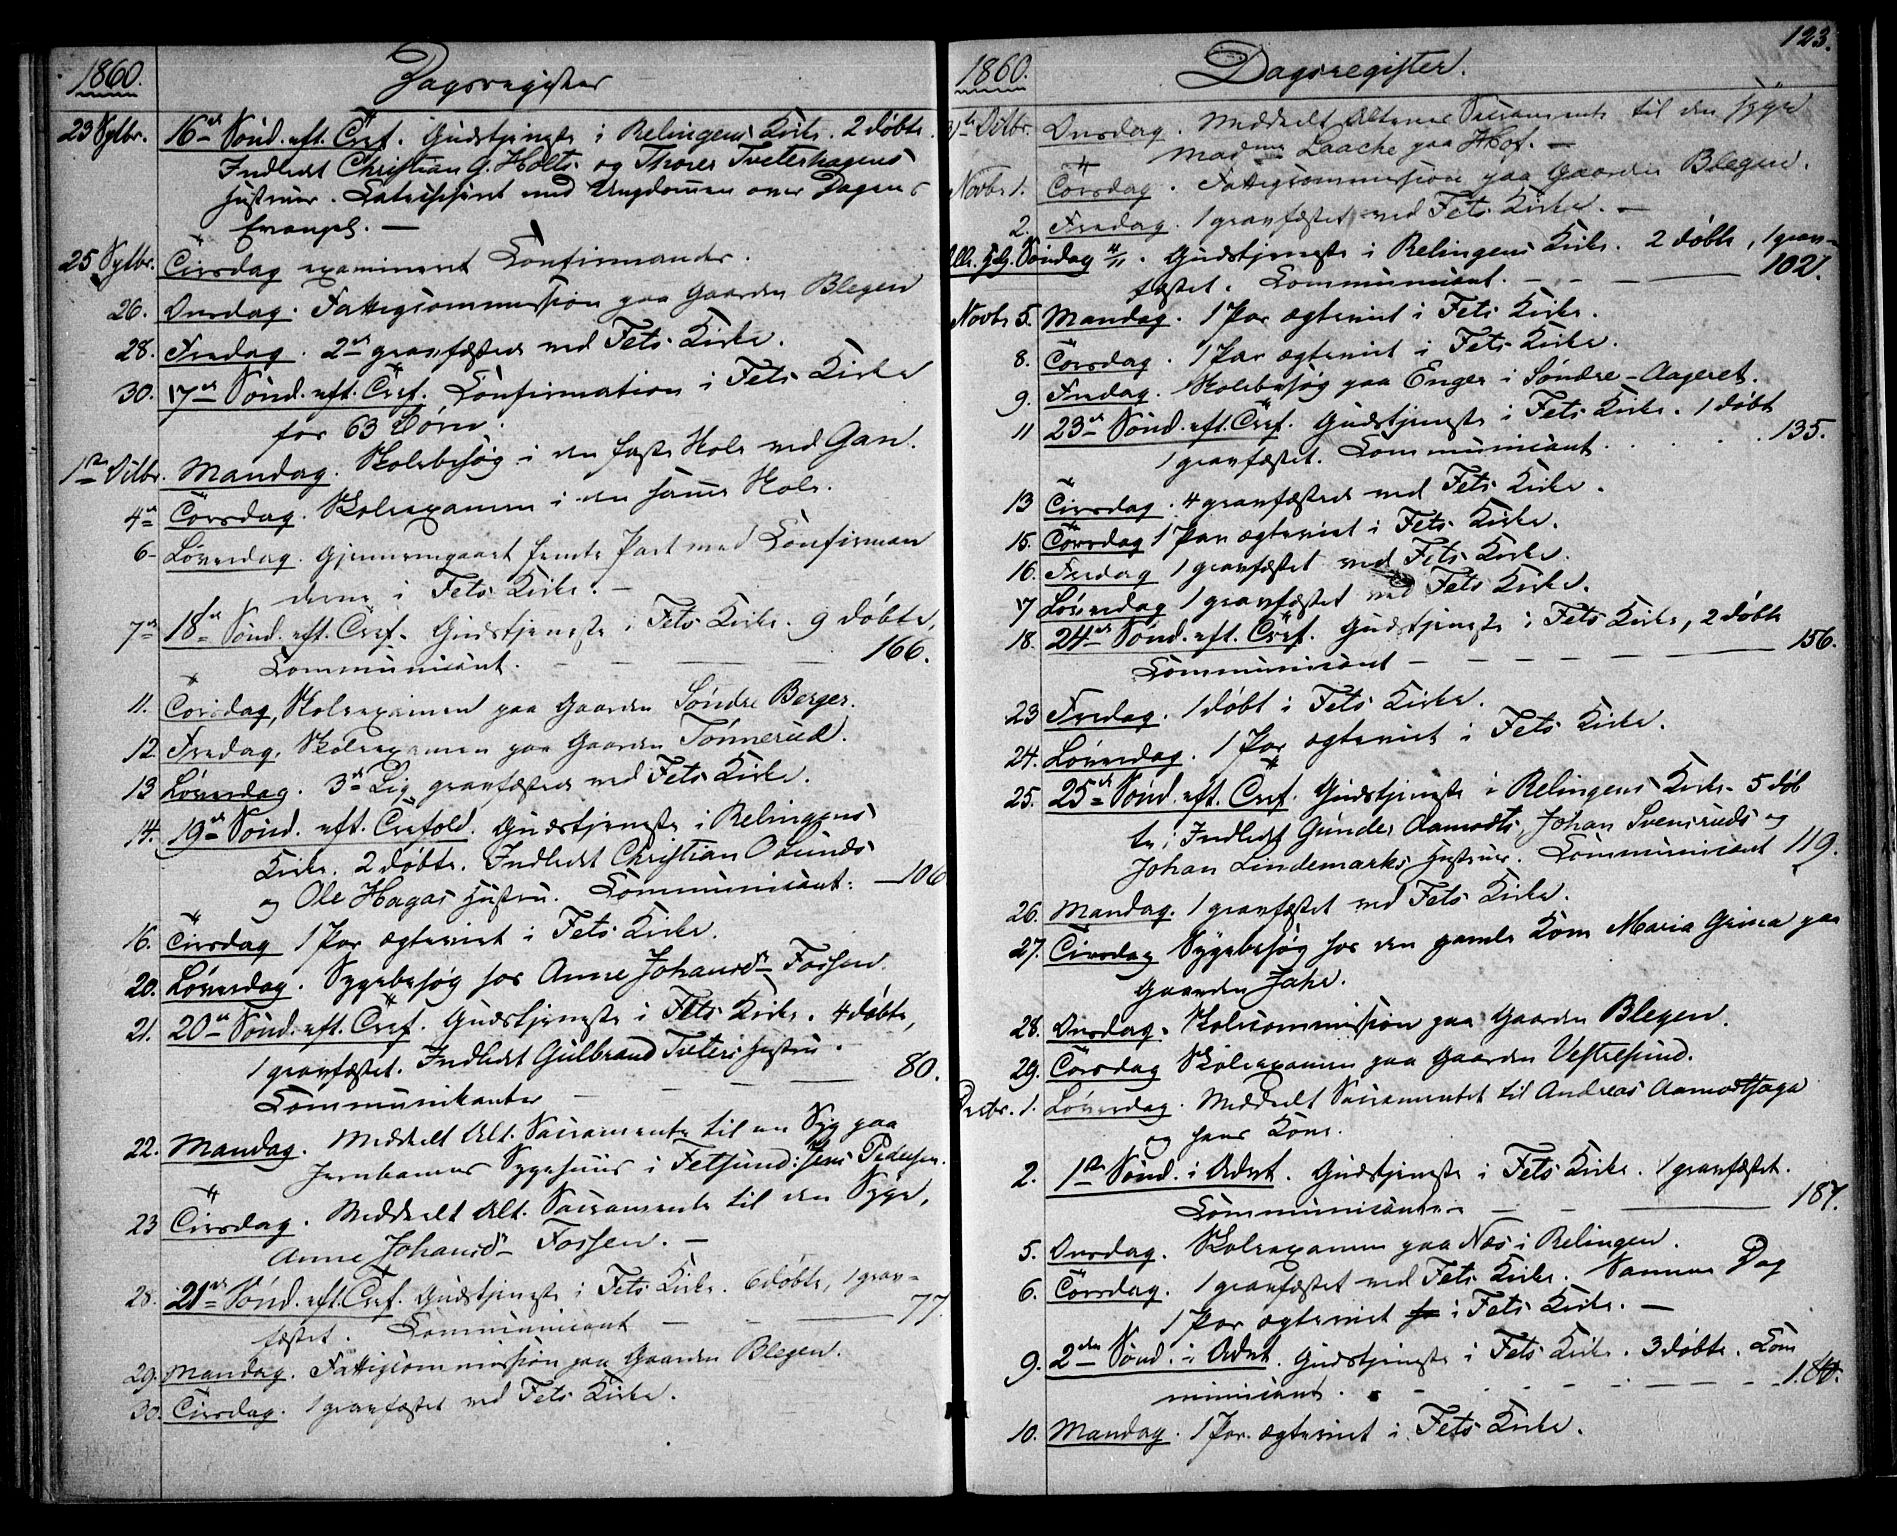 1860.
Dagsregister
23 Sptbr. 16de Sønd. eft. Tref. Gudstjeneste i Relingens Kirke. 2 døbte.
Indledt Christian G. Holts og Thorer Tveterhagens
Hustruer. Catechiseret med Ungdommen over Dagens
Evangel. —
25 Sptbr. Tirsdag examineret Confirmander.
26. Onsdag. Fattigcommission paa Gaarden Blegen
28. Fredag. 2de gravfæstede ved Fets Kirke.
30. 17de Sønd. eft. Tref. Confirmation i Fets Kirke
for 63 Børn.
1ste Octbr. Mandag. Skolebesøg i den faste Skole ved Gan.
4de Torsdag. Skoleexamen i den samme Skole.
6- Løverdag. Gjennemgaaet femte Part med Confirman
derne i Fets Kirke. —
7de 18de Sønd. eft. Tref. Gudstjeneste i Fets Kirke. 9 døbte,
Communicant. — — — 166.
11. Torsdag, Skoleexamen paa Gaarden Søndre Berger.
12 Fredag, Skoleexamen paa Gaarden Tønnerud.
13 Løverdag. 3de Lig gravfæstede ved Fets Kirke.
14. 19de Sønd. eft. Trefold. Gudstjeneste i Relingens
Kirke. 2 døbte. Indledt Christian Osunds
og Ole Hagas Hustru. Communicant: — 106
16. Tirsdag 1 Par ægteviet i Fets Kirke.
20. Løverdag. Sygebesøg hos Anne Johansd. Fossen.
21. 20de Sønd. eft. Tref. Gudstjeneste i Fets Kirke. 4 døbte,
1 gravfæstet. Indledt Gulbrand Tveters Hustru.
Communikanter — — — 80.
22. Mandag. Meddeelt Alt. Sacramente til en Syg paa
Jernbanens Sygehuus i Fetsund: Jens Pedersen.
23 Tirsdag. Meddeelt Alt. Sacramente til den Syge,
Anne Johansd. Fossen. —
28. 21de Sønd. eft. Tref. Gudstjeneste i Fets Kirke. 6 døbte, 1 grav-
fæstet. Communicant — — — 77.
29. Mandag. Fattigcommission paa Gaarden Blegen.
30. Tirsdag. 1 gravfæstet ved Fets Kirke.
123.
1860.
Dagsregister.
Octbr. Onsdag. Meddeelt Alterens Sacramente til den syge
Madme Laache paa Hof. —
Novbr 1. Torsdag. Fattigcommission paa Gaarden Blegen.
2. Fredag. 1 gravfæstet ved Fets Kirke. —
Alle. Hlg. Søndag 4/11. Gudstjeneste i Relingens Kirke. 2 døbte, 1 grav-
fæstet. Communicant. — — — 102.
Novbr 5. Mandag. 1 Par ægteviet i Fets Kirke.
8. Torsdag. 1 Par ægteviet i Fets Kirke.
9. Fredag. Skolebesøg paa Enger i Søndre-Aageret.
11 23de Sønd. eft. Tref. Gudstjeneste i Fets Kirke. 1 døbt
1 gravfæstet. Communicant. . . . . 135.
13 Tirsdag. 4 gravfæstede ved Fets Kirke.
15. Torsdag 1 Par ægteviet i Fets Kirke.
16. Fredag 1 gravfæstet ved Fets Kirke.
17 Løverdag 1 gravfæstet ved Fets Kirke.
18. 24de Sønd. eft. Tref. Gudstjeneste i Fets Kirke, 2 døbte
Communicant — — — 156.
23 Fredag. 1 døbt i Fets Kirke.
24. Løverdag. 1 Par ægteviet i Fets Kirke.
25. 25de Sønd. eft. Tref. Gudstjeneste i Relingens Kirke. 5 døb
te, Indledt Gunder Aamodts, Johan Svensruds og
Johan Lindemarks Hustruer. Communicant 119.
26. Mandag. 1 gravfæstet ved Fets Kirke.
27. Tirsdag Sygebesøg hos den gamle Kone Maria Grina paa
Gaarden Jahr.
28. Onsdag. Skolecommission paa Gaarden Blegen.
29. Torsdag Skoleexamen paa Gaarden Vestresund.
Decbr. 1. Løverdag. Meddeelt Sacramentet til Andreas Aamodthaga
og hans Kone.
2. 1ste Sønd. i Advt. Gudstjeneste i Fets Kirke. 1 gravfæstet.
Communicanter — — — 187.
5. Onsdag. Skoleexamen paa Næs i Relingen.
6. Torsdag. 1 gravfæstet ved Fets Kirke. Samme Dag
1 Par ægteviet i Fets Kirke. —
9. 2den Sønd. i Advt. Gudstjeneste i Fets Kirke. 3 døbte. Com
municant. - - - 180.
10. Mandag. 1 Par ægteviet i Fets Kirke.